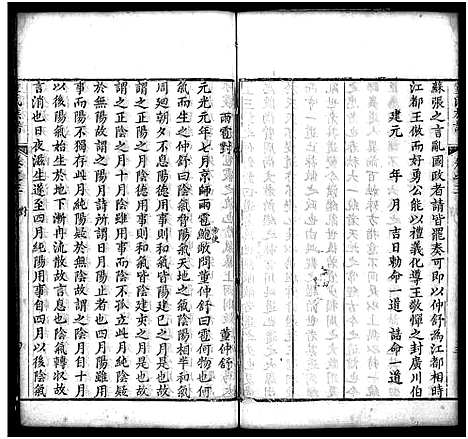 蘇張之言亂國政者請皆罷奏可即以仲舒為江都相時
江都王做而好勇公能以禮義化導王敬憚之封廣川伯
建元　年　月　吉日勅命一道　誥命一道
雨雹對
董仲舒
元光元年七月京師雨雹鮑敞問董仲舒曰雹何物也何
氣而生之仲舒曰陰氣脅陽氣天地之氣陰陽相半和氣
周廻朝夕不息陽德用事則和氣皆陽建巳之月是也故
謂之正陽之月陰德用事則和氣皆陰建亥之月是也故
謂之正陰之月十月陰雖用事而陰不孤立此月純陰疑
於無陽故謂之陽月詩人所謂日月陽止者也四月陽雖用
事而陽不獨存此月純陽疑於無陰故謂之陰月自十月
以後陽氣始生於地下漸冉流散故言息也陰氣轉收故
言消也日夜滋生遂至四月純陽用事自四月以後陰氣